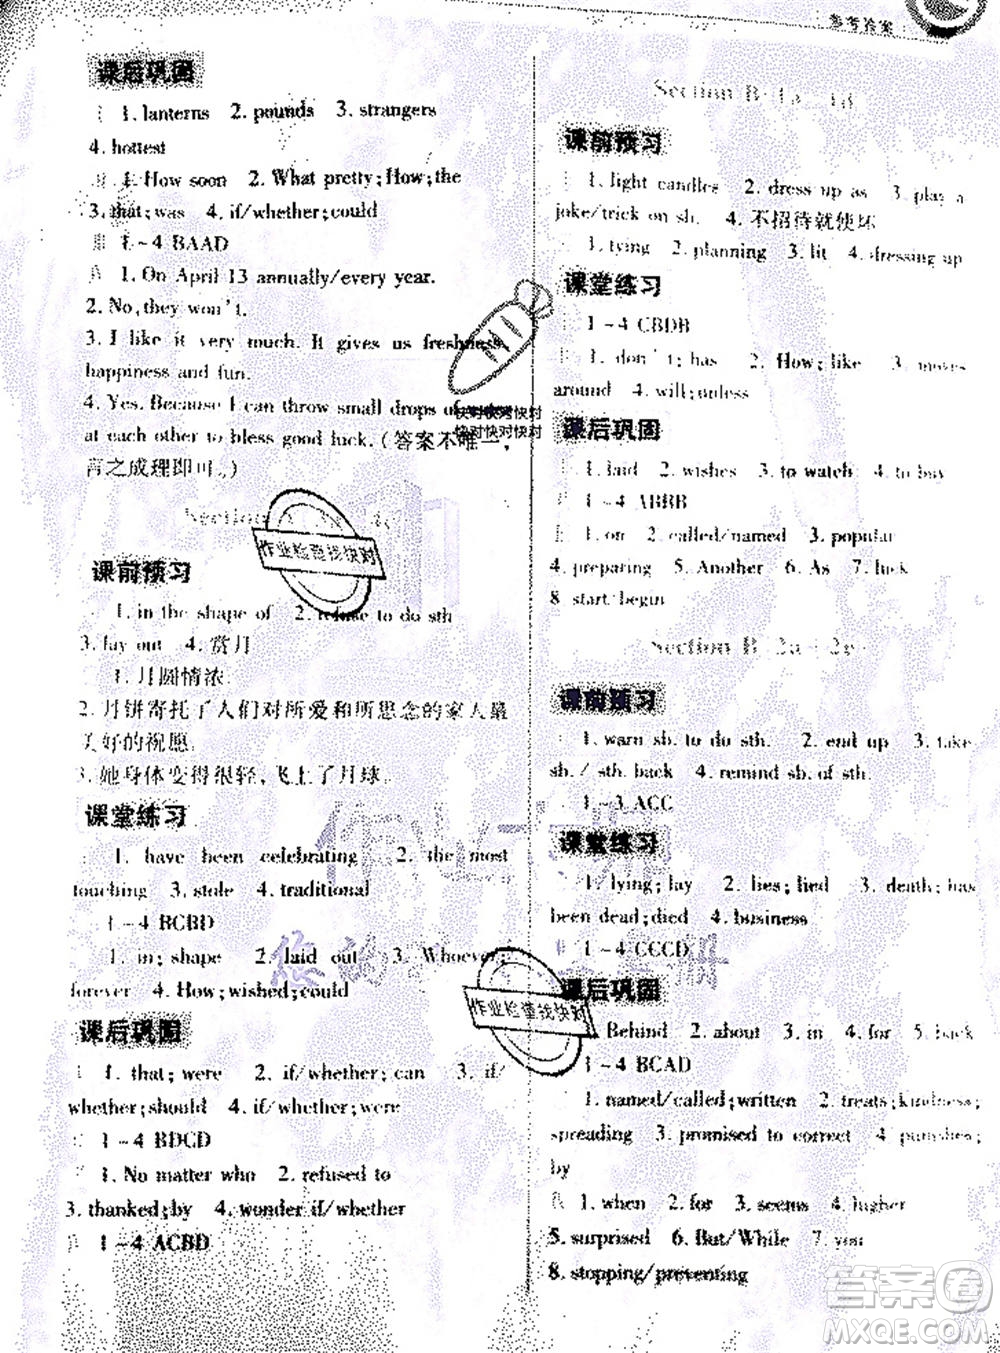 参考答案
课后巩固
1. lanterns 2. pounds 3. strangers
4. hottest
1. How soon 2. What pretty;How;the
3. that;was 4. if/whether;could
1~4 BAAD
1. On April 13 annually/every year.
2. No,they won't.
3. I like it very much. It gives us freshness,
happiness and fun.
4. Yes. Because I can throw small drops of
at each other to bless good luck.(答案不唯一,
言之成理即可。)
Section
课前预习
1. in the shape of 2. refuse to do sth.
3. lay out 4. 赏月
1. 月圆情浓.
2. 月饼寄托了人们对所爱和所思念的家人最
美好的祝愿.
3. 她身体变得很轻,飞上了月球.
课堂练习
1. have been celebrating 2. the most
touching 3. stole 4. traditional
1~4 BCBD
1. in;shape 2. laid out 3. Whoever;
forever 4. How;wished;could
课后巩固
1. that;were 2. if/whether;can 3. if/
whether;should 4. if/whether;were
1~4 BDCD
1. No matter who 2. refused to
3. thanked;by 4. wonder if/whether
1~4 ACBD
Section B 1a~1d
课前预习
1. light candles 2. dress up as 3. play a
joke/trick on sb. 4. 不招待就使坏
1. tying 2. planning 3. lit 4. dressing up
课堂练习
1~4 CBDB
1. don't;has 2. How;like 3. moves
around 4. will;unless
课后巩固
1. laid 2. wishes 3. to watch 4. to buy
1~4 ABBB
1. on 2. called/named 3. popular
4. preparing 5. Another 6. As 7. luck
8. start/begin
Section B 2a~2e
课前预习
1. warn sb. to do sth. 2. end up 3. take
sb./sth. back 4. remind sb. of sth.
1~3 ACC
课堂练习
1. lying;lay 2. lies;lied 3. death;has
been dead;died 4. business
1~4 CCCD
课后巩固
Behind 2. about 3. in 4. for 5. back
1~4 BCAD
1. named/called;written 2. treats;kindness;
spreading 3. promised to correct 4. punished;
by
1. when 2. for 3. seems 4. higher
5. surprised 6. But/While 7. you
8. stopping/preventing
快对快对快对
快对快对快对
作业检查找快对
作业检查找快对
答案圈
MXQE.COM